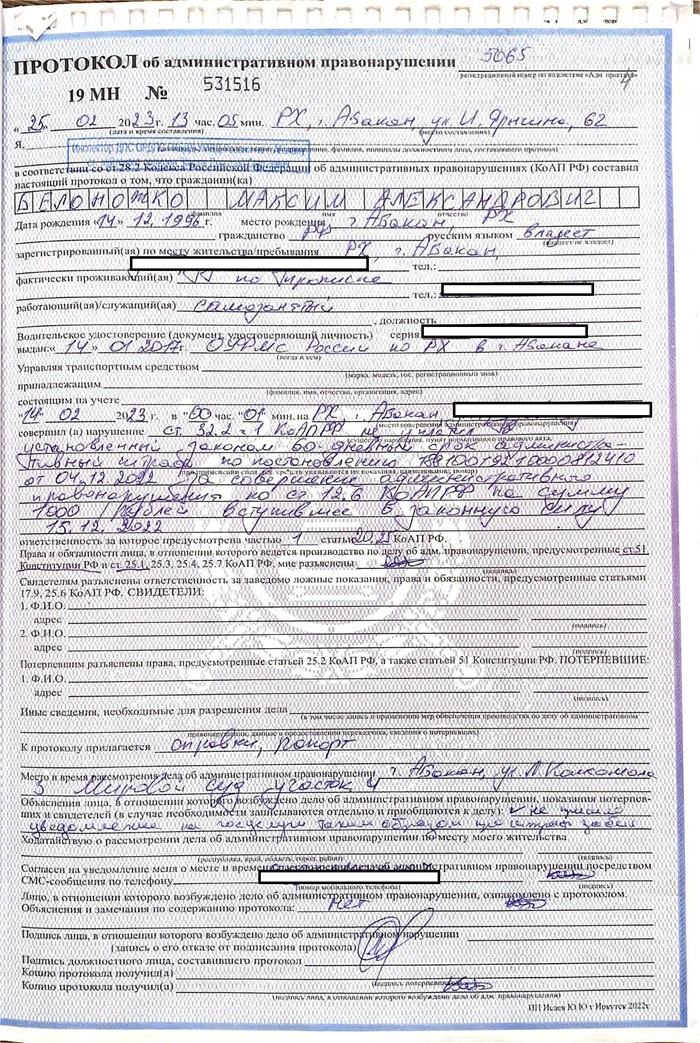 5065
ПРОТОКОЛ об административном правонарушении
регистрационный номер по подсистеме «Адм. практика»
4
19 МН № 531516
« 25 » 02 2023 г. 13 час. 05 мин. РХ, г. Абакан, ул. И. Ярыгина, 62
(дата и время составления) (место составления)
Я,
Инспектор ДПС ОРДПС ГИБДД
фамилия, инициалы должностного лица, составившего протокол)
в соответствии со ст.28.2 Кодекса Российской Федерации об административных правонарушениях (КоАП РФ) составил
настоящий протокол о том, что гражданин(ка)
БЕЛОНОЖКО МАКСИМ АЛЕКСАНДРОВИЧ
фамилия имя отчество
Дата рождения «14» 12.1996 г. место рождения г. Абакан, РХ
гражданство РФ русским языком владеет
(владеет/не владеет)
зарегистрированный(ая) по месту жительства/пребывания РХ, г. Абакан,
тел.:
фактически проживающий(ая) по прописке
тел.:
работающий(ая)/служащий(ая) самозанятый
, должность
Водительское удостоверение (документ, удостоверяющий личность) серия
выдан: « 14 » 01 2017 г. ОУФМС России по РХ в г. Абакане
(когда и кем)
Управляя транспортным средством
(марка, модель, гос. регистрационный знак)
принадлежащим
(фамилия, имя, отчество, организация, адрес)
состоящим на учете
14 02 2023 г. в "00 час. "01 мин. на РХ, г. Абакан,
место совершения административного правонарушения)
совершил (а) нарушение ст. 32.2 ч 1 КоАП РФ не уплатил в
установленный законом 60-дневный срок администра-
тивный штраф по постановлению
от 04.12.2022 за совершение административного
правонарушения по ст. 12.6 КоАП РФ на сумму
1000 рублей вступившее в законную силу
15.12.2022
ответственность за которое предусмотрена частью 1 статьи 20.25 КоАП РФ.
Права и обязанности лица, в отношении которого ведется производство по делу об адм. правонарушении, предусмотренные ст.51
Конституции РФ и ст. 25.1, 25.3, 25.4, 25.7 КоАП РФ, мне разъяснены
(подпись)
Свидетелям разъяснены ответственность за заведомо ложные показания, права и обязанности, предусмотренные статьями
17.9, 25.6 КоАП РФ. СВИДЕТЕЛИ:
1. Ф.И.О.
адрес
(подпись)
2. Ф.И.О.
адрес
(подпись)
Потерпевшим разъяснены права, предусмотренные статьей 25.2 КоАП РФ, а также статьей 51 Конституции РФ. ПОТЕРПЕВШИЕ:
1. Ф.И.О.
адрес
(подпись)
Иные сведения, необходимые для разрешения дела
(в том числе запись о применении мер обеспечения производства по делу об административном
правонарушении, данные о предоставлении переводчика, сведения о потерпевших)
К протоколу прилагается справки, рапорт
Место и время рассмотрения дела об административном правонарушении г. Абакан, ул. Л. Комсомола
3 Мировой суд участок 4
Объяснения лица, в отношении которого возбуждено дело об административном правонарушении, показания потерпев-
ших и свидетелей (в случае необходимости записываются отдельно и приобщаются к делу): не пришло
уведомление на госуслуги таким образом про штраф забыл
Ходатайствую о рассмотрении дела об административном правонарушении по месту моего жительства
(республика, край, область, город, район) (подпись)
Согласен на уведомление меня о месте и времени
административном правонарушении посредством
СМС-сообщения по телефону
(номер мобильного телефона) (подпись)
Лицо, в отношении которого возбуждено дело об административном правонарушении, ознакомлено с протоколом.
Объяснения и замечания по содержанию протокола: нет
Подпись лица, в отношении которого возбуждено дело об административном правонарушении
(запись о его отказе от подписания протокола)
Подпись должностного лица, составившего протокол
Копию протокола получил(а)
(подпись потерпевшего)
Копию протокола получил(а)
(подпись лица, в отношении которого возбуждено дело об адм. правонарушении)
ИП Исаев Ю.Ю г Иркутск 2022г.